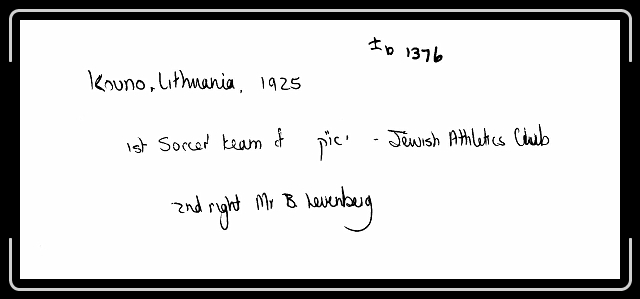 1376
Kouno, Lithuania, 1925
1st Soccer team of pic. - Jewish Athletics Club
2nd right Mr B Levenberg